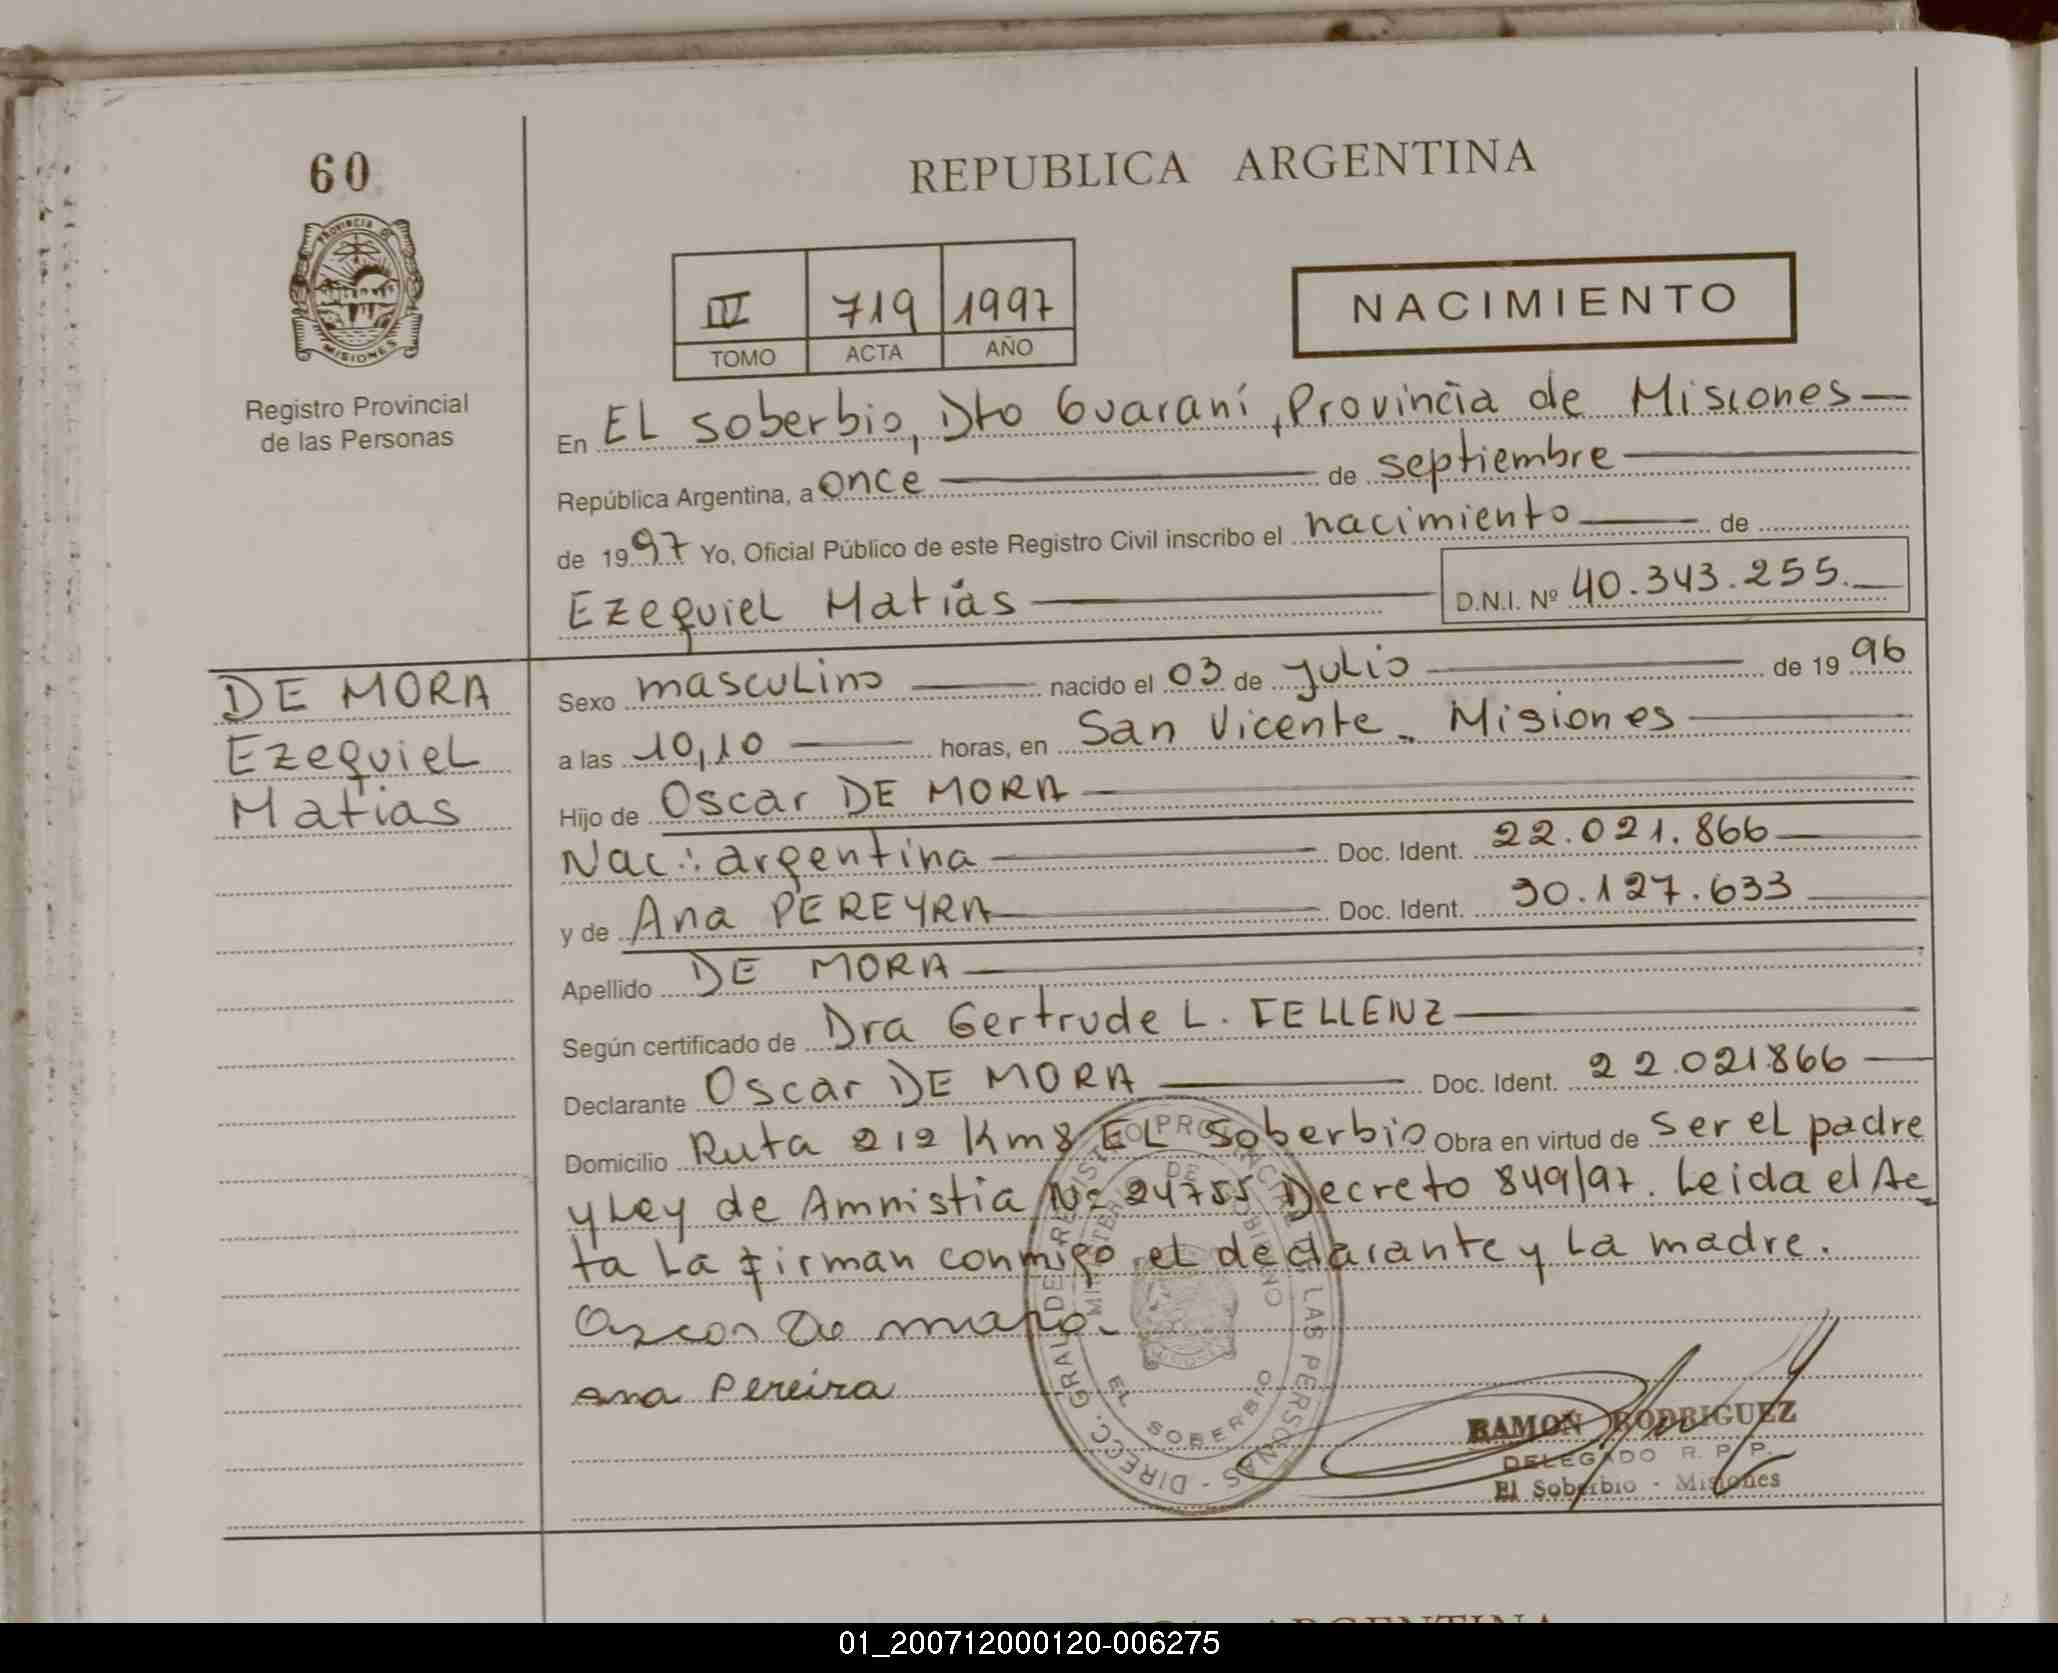 60
REPUBLICA ARGENTINA
PROVINCIA DE
MISIONES
III 719 1997
TOMO ACTA AÑO
NACIMIENTO
Registro Provincial
de las Personas
En EL Soberbio, Dto Guaraní, Provincia de Misiones
República Argentina, a once de septiembre
de 1997 Yo, Oficial Público de este Registro Civil inscribo el nacimiento de
Ezequiel Matías D.N.I. Nº 40.343.255.
DE MORA
Ezequiel
Matias
Sexo masculino nacido el 03 de julio de 1996
a las 10,10 horas, en San Vicente - Misiones
Hijo de Oscar DE MORA
Nac: argentina Doc. Ident. 22.021.866
y de Ana PEREYRA Doc. Ident. 30.127.633
Apellido DE MORA
Según certificado de Dra Gertrude L. FELLENZ
Declarante Oscar DE MORA Doc. Ident. 22.021866
Domicilio Ruta 212 Km 8 EL Soberbio Obra en virtud de ser el padre
y Ley de Amnistia Nº 24755 Decreto 849/97. Leida el Ac
ta La firman conmigo el declarante y La madre.
Oscar De mora
ana Pereira
DIRECC. GRAL DE REGISTRO PROVINCIAL DE LAS PERSONAS -
MINISTERIO DE GOBIERNO
EL SOBERBIO
RAMON RODRIGUEZ
DELEGADO R. P. P.
El Soberbio - Misiones
ARGENTINA
01_200712000120-006275